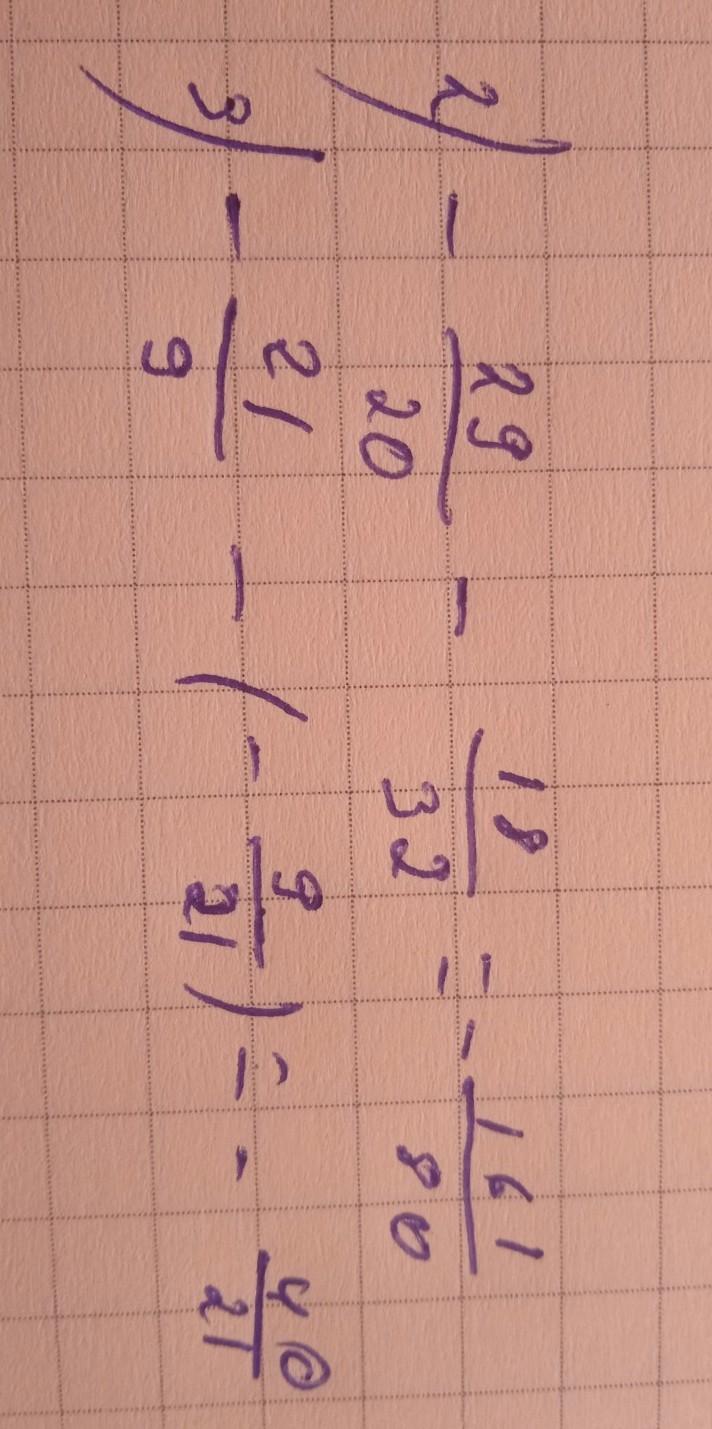 2) - 29/20 - 18/32 = - 161/80
3) - 21/9 - (- 9/21) = - 40/21